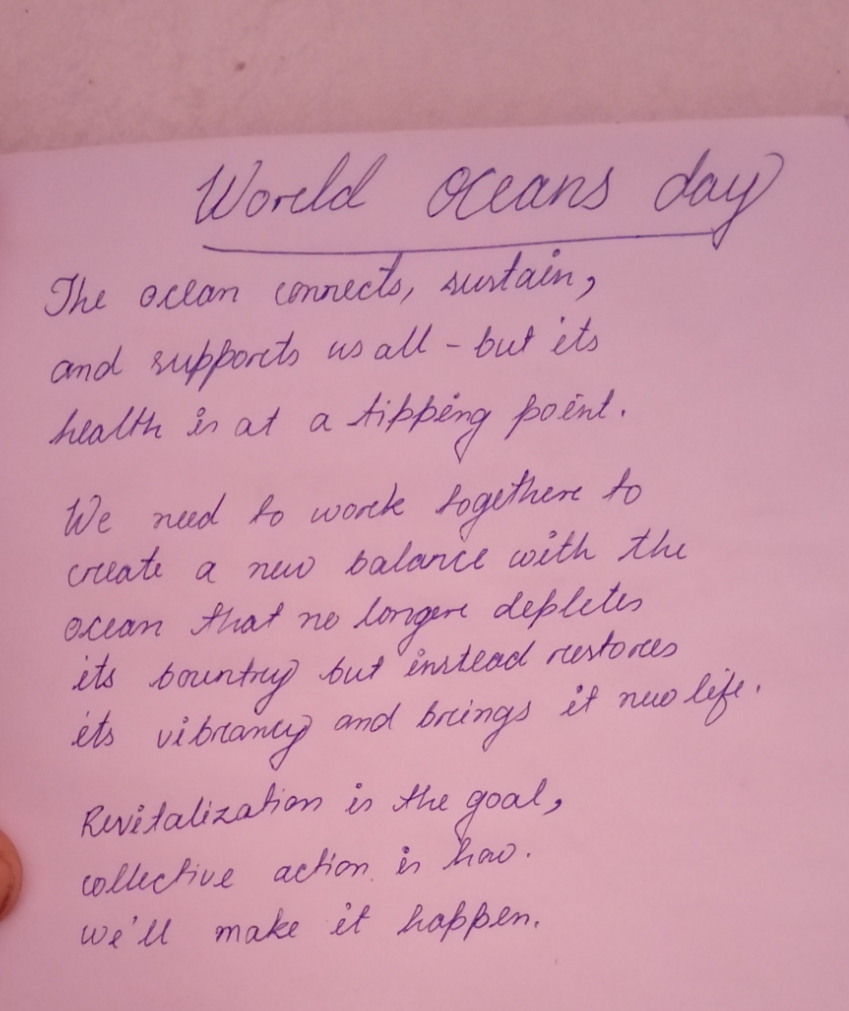 World Oceans day
The ocean connects, sustain,
and supports us all - but its
health is at a tipping point.
We need to work together to
create a new balance with the
ocean that no longer depletes
its bountry but instead restores
its vibrancy and brings it new life.
Revitalization is the goal,
collective action is how.
we'll make it happen.